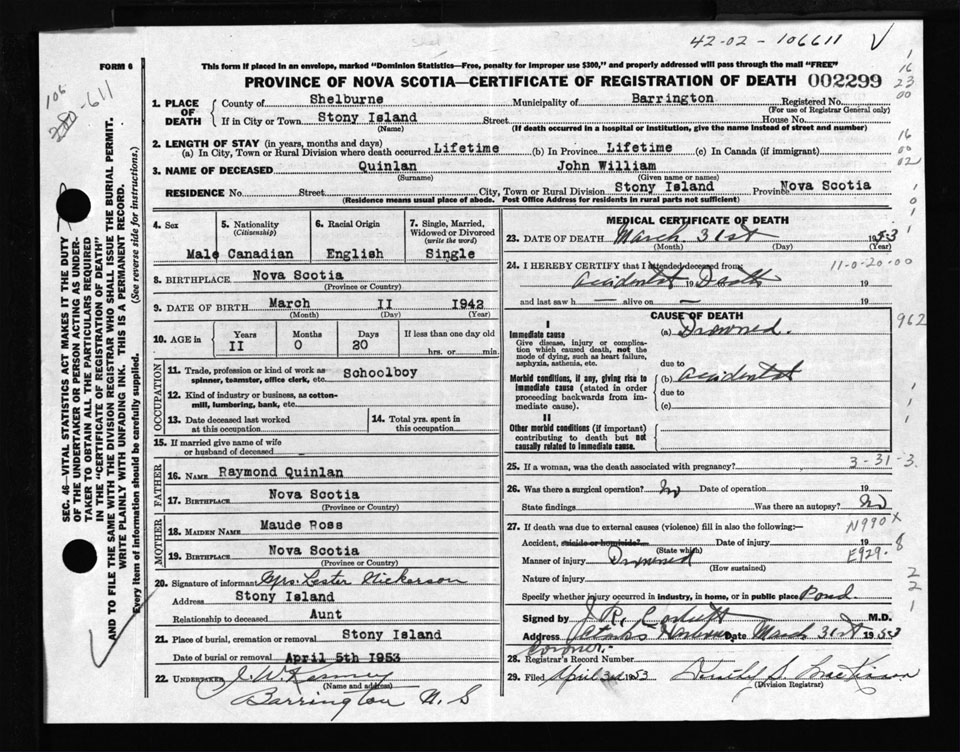 42-02-106611 V
FORM 6
This form if placed in an envelope, marked "Dominion Statistics—Free, penalty for improper use $300," and properly addressed will pass through the mail "FREE"
PROVINCE OF NOVA SCOTIA—CERTIFICATE OF REGISTRATION OF DEATH 002299
106
-611
SEC. 46—VITAL STATISTICS ACT MAKES IT THE DUTY
OF THE UNDERTAKER OR PERSON ACTING AS UNDER-
TAKER TO OBTAIN ALL THE PARTICULARS REQUIRED
IN THE "CERTIFICATE OF REGISTRATION OF DEATH"
AND TO FILE THE SAME WITH THE DIVISION REGISTRAR WHO SHALL ISSUE THE BURIAL PERMIT.
WRITE PLAINLY WITH UNFADING INK. THIS IS A PERMANENT RECORD.
Every item of information should be carefully supplied. (See reverse side for instructions.)
1. PLACE OF DEATH
County of Shelburne Municipality of Barrington Registered No.
(For use of Registrar General only)
If in City or Town Stony Island Street House No.
(Name) (If death occurred in a hospital or institution, give the name instead of street and number)
2. LENGTH OF STAY (in years, months and days)
(a) In City, Town or Rural Division where death occurred Lifetime (b) In Province Lifetime (c) In Canada (if immigrant)
3. NAME OF DECEASED Quinlan John William
(Surname) (Given name or names)
RESIDENCE No. Street City, Town or Rural Division Stony Island Province Nova Scotia
(Residence means usual place of abode. Post Office Address for residents in rural parts not sufficient)
4. Sex
Male
5. Nationality
(Citizenship)
Canadian
6. Racial Origin
English
7. Single, Married,
Widowed or Divorced
(write the word)
Single
8. BIRTHPLACE Nova Scotia
(Province or Country)
9. DATE OF BIRTH March II 1942
(Month) (Day) (Year)
10. AGE in
Years Months Days If less than one day old
II 0 20 hrs. or min.
OCCUPATION
11. Trade, profession or kind of work as
spinner, teamster, office clerk, etc. Schoolboy
12. Kind of industry or business, as cotton-
mill, lumbering, bank, etc.
13. Date deceased last worked
at this occupation
14. Total yrs. spent in
this occupation
15. If married give name of wife
or husband of deceased
FATHER
16. NAME Raymond Quinlan
17. BIRTHPLACE Nova Scotia
(Province or Country)
MOTHER
18. MAIDEN NAME Maude Ross
19. BIRTHPLACE Nova Scotia
(Province or Country)
20. Signature of informant Mrs. Lester Nickerson
Address Stony Island
Relationship to deceased Aunt
21. Place of burial, cremation or removal Stony Island
Date of burial or removal April 5th 1953
22. UNDERTAKER J. W. Kenney
(Name and address)
Barrington N. S
MEDICAL CERTIFICATE OF DEATH
23. DATE OF DEATH March 31st 1953
(Month) (Day) (Year)
24. I HEREBY CERTIFY that I attended deceased from 11-0-20-00
Accidental 19 Death 19
and last saw h — alive on — 19
CAUSE OF DEATH
I
Immediate cause
Give disease, injury or complica-
tion which caused death, not the
mode of dying, such as heart failure,
asphyxia, asthenia, etc.
(a) Drowned.
962
due to
Morbid conditions, if any, giving rise to
immediate cause (stated in order
proceeding backwards from im-
mediate cause).
(b) Accidental
due to
(c)
II
Other morbid conditions (if important)
contributing to death but not
causally related to immediate cause.
25. If a woman, was the death associated with pregnancy? 3-31-3.
26. Was there a surgical operation? No Date of operation 19
State findings Was there an autopsy? No
27. If death was due to external causes (violence) fill in also the following: N990X
Accident, suicide or homicide? Date of injury 19
(State which)
E929.8
Manner of injury Drowned
(How sustained)
Nature of injury
Specify whether injury occurred in industry, in home, or in public place Pond.
Signed by M.D.
Address Date March 31st 1953
Coroner.
28. Registrar's Record Number
29. Filed April 3rd 1953
(Division Registrar)